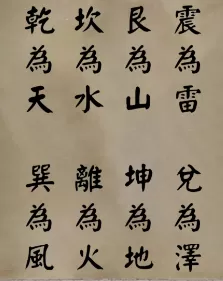 乾為天
坎為水
艮為山
震為雷
巽為風
離為火
坤為地
兌為澤